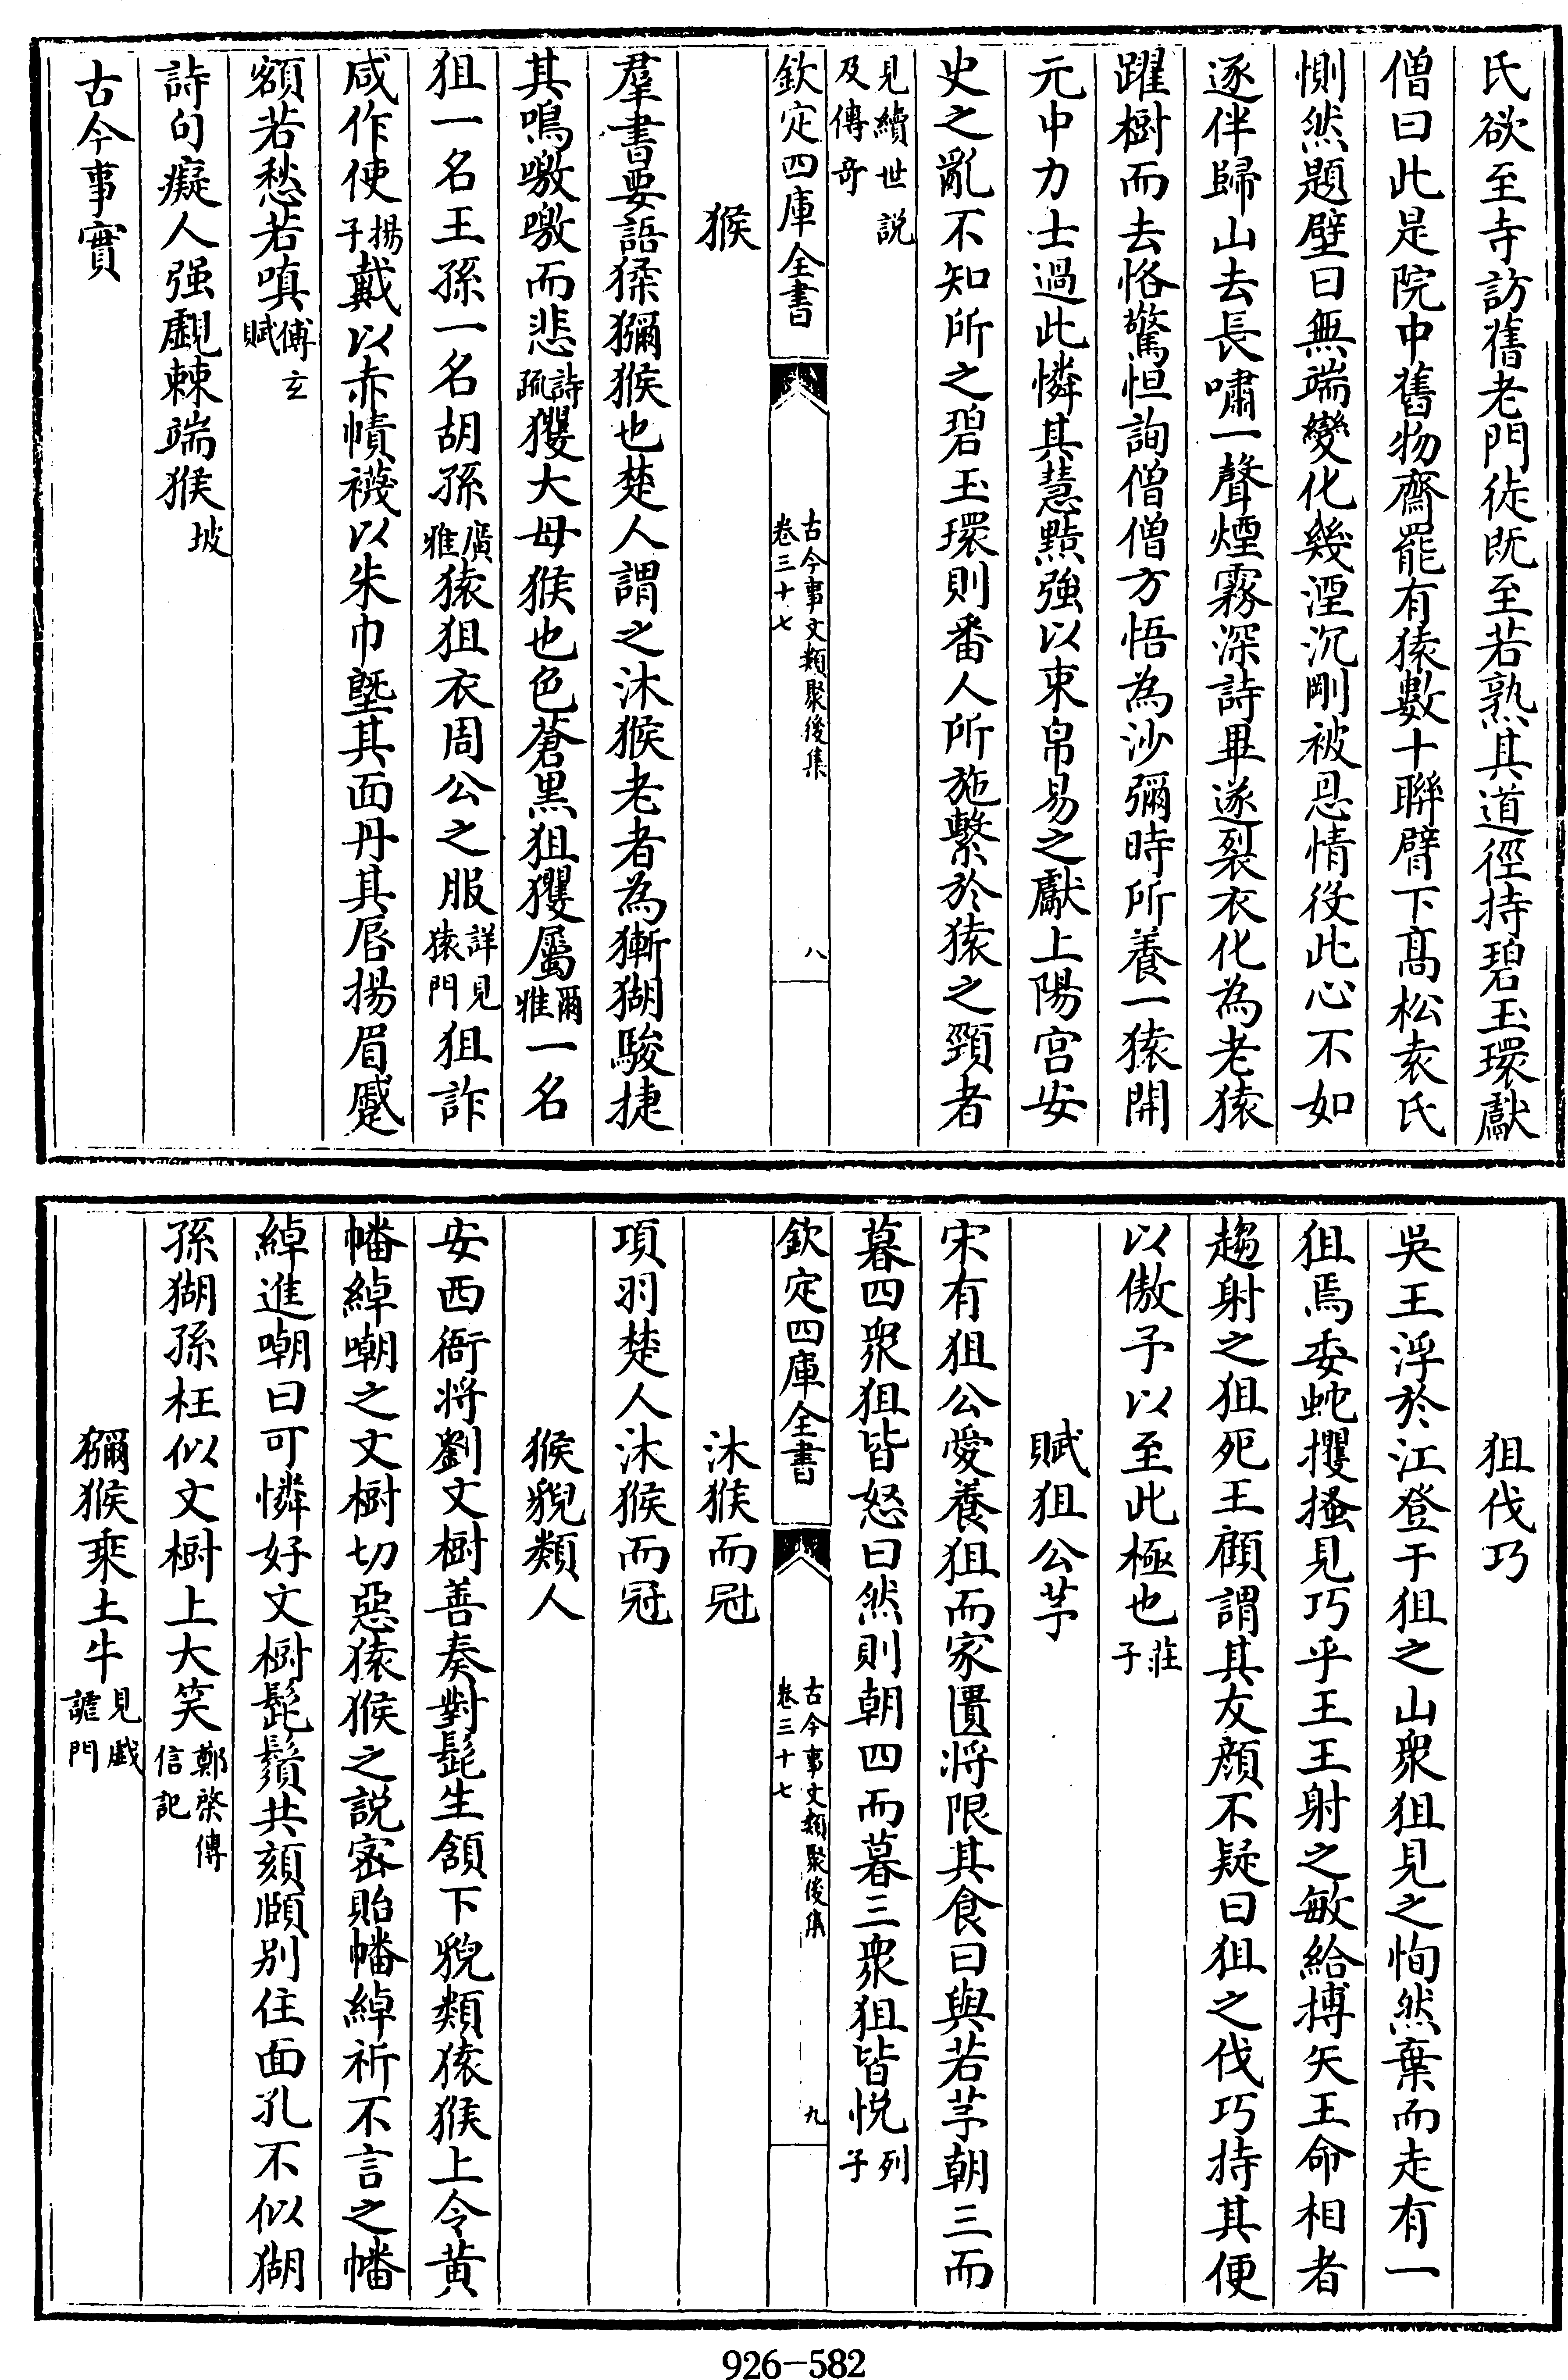 氏欲至寺訪舊老門徒既至若熟其道徑持碧玉環獻
僧曰此是院中舊物齋罷有猿數十聯臂下髙松袁氏
惻然題壁曰無端變化幾湮沉剛被恩情役此心不如
逐伴歸山去長嘯一聲煙霧深詩畢遂裂衣化為老猿
躍樹而去恪驚怛詢僧僧方悟為沙彌時所養一猿開
元中力士過此憐其慧黠強以束帛易之獻上陽宫安
史之亂不知所之碧玉環則番人所施繫於猿之頸者
見續世説
及傳奇
欽定四庫全書
古今事文類聚後集
卷三十七
八
猴
羣書要語猱獼猴也楚人謂之沐猴老者為獑猢駿捷
其鳴噭噭而悲詩疏玃大母猴也色蒼黒狙玃屬爾雅一名
狙一名王孫一名胡孫廣雅猿狙衣周公之服詳見猿門狙詐
咸作使揚子戴以赤幘襪以朱巾塈其面丹其唇揚眉蹙
額若愁若嗔傅玄賦
詩句癡人强覷棘端猴坡
古今事實
狙伐巧
吳王浮於江登于狙之山衆狙見之恂然棄而走有一
狙焉委蛇攫搔見巧乎王王射之敏給搏矢王命相者
趨射之狙死王顧謂其友顔不疑曰狙之伐巧持其便
以傲予以至此極也莊子
賦狙公芧
宋有狙公愛養狙而家匱將限其食曰與若芧朝三而
暮四衆狙皆怒曰然則朝四而暮三衆狙皆悦列子
欽定四庫全書
古今事文類聚後集
卷三十七
九
沐猴而冠
項羽楚人沐猴而冠
猴貌類人
安西衙将劉文樹善奏對髭生頷下貌類猿猴上令黄
幡綽嘲之文樹切惡猿猴之説密貽幡綽祈不言之幡
綽進嘲曰可憐好文樹髭鬚共頦頥别住面孔不似猢
孫猢孫枉似文樹上大笑鄭棨傳信記
獼猴乘土牛見戯謔門
926-582